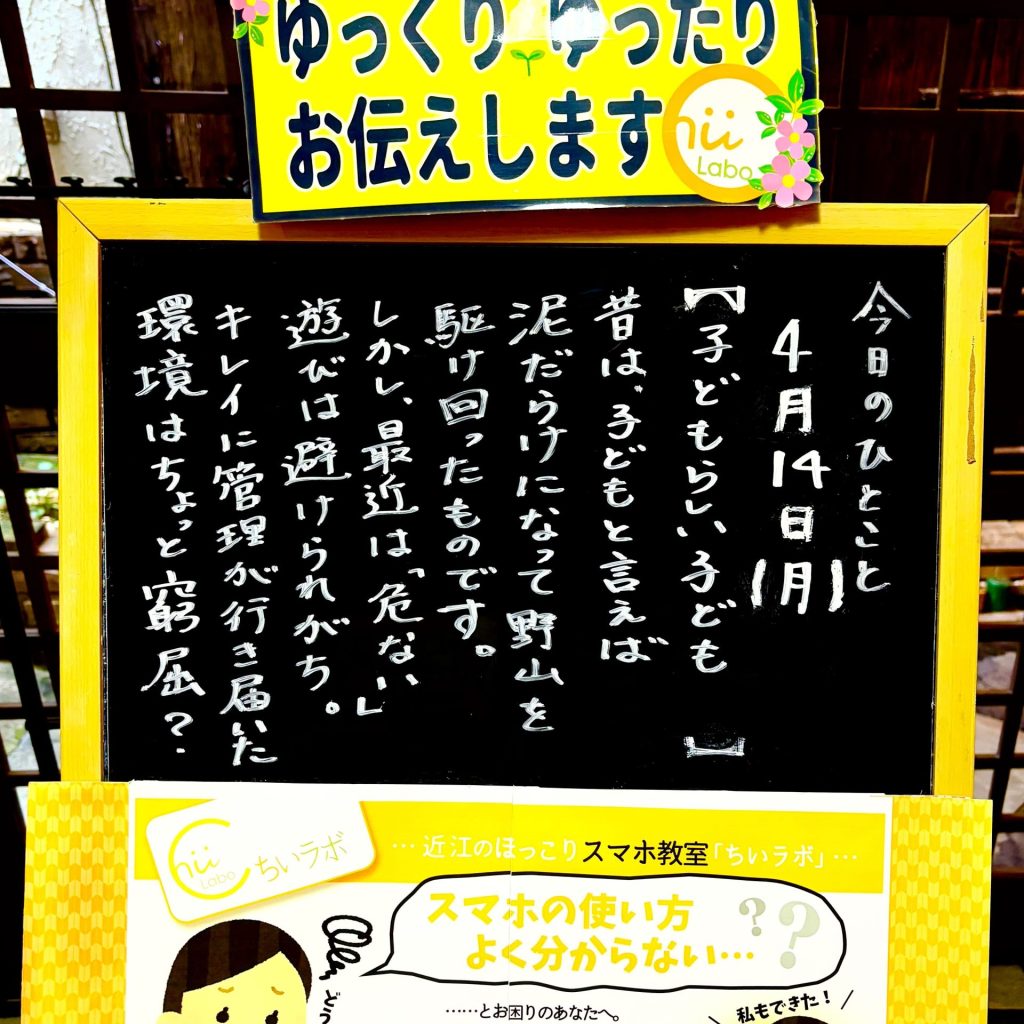 ゆっくりゆったり
お伝えします
Chii
Labo
今日のひとこと
4月14日(月)
【子どもらしい子ども】
昔は、子どもと言えば
泥だらけになって野山を
駆け回ったものです。
しかし、最近は「危ない」
遊びは避けられがち。
キレイに管理が行き届いた
環境はちょっと窮屈?
Chii
Labo
ちいラボ
…近江のほっこりスマホ教室「ちいラボ」…
スマホの使い方
よく分からない…??
……とお困りのあなたへ。
どう
私もできた!